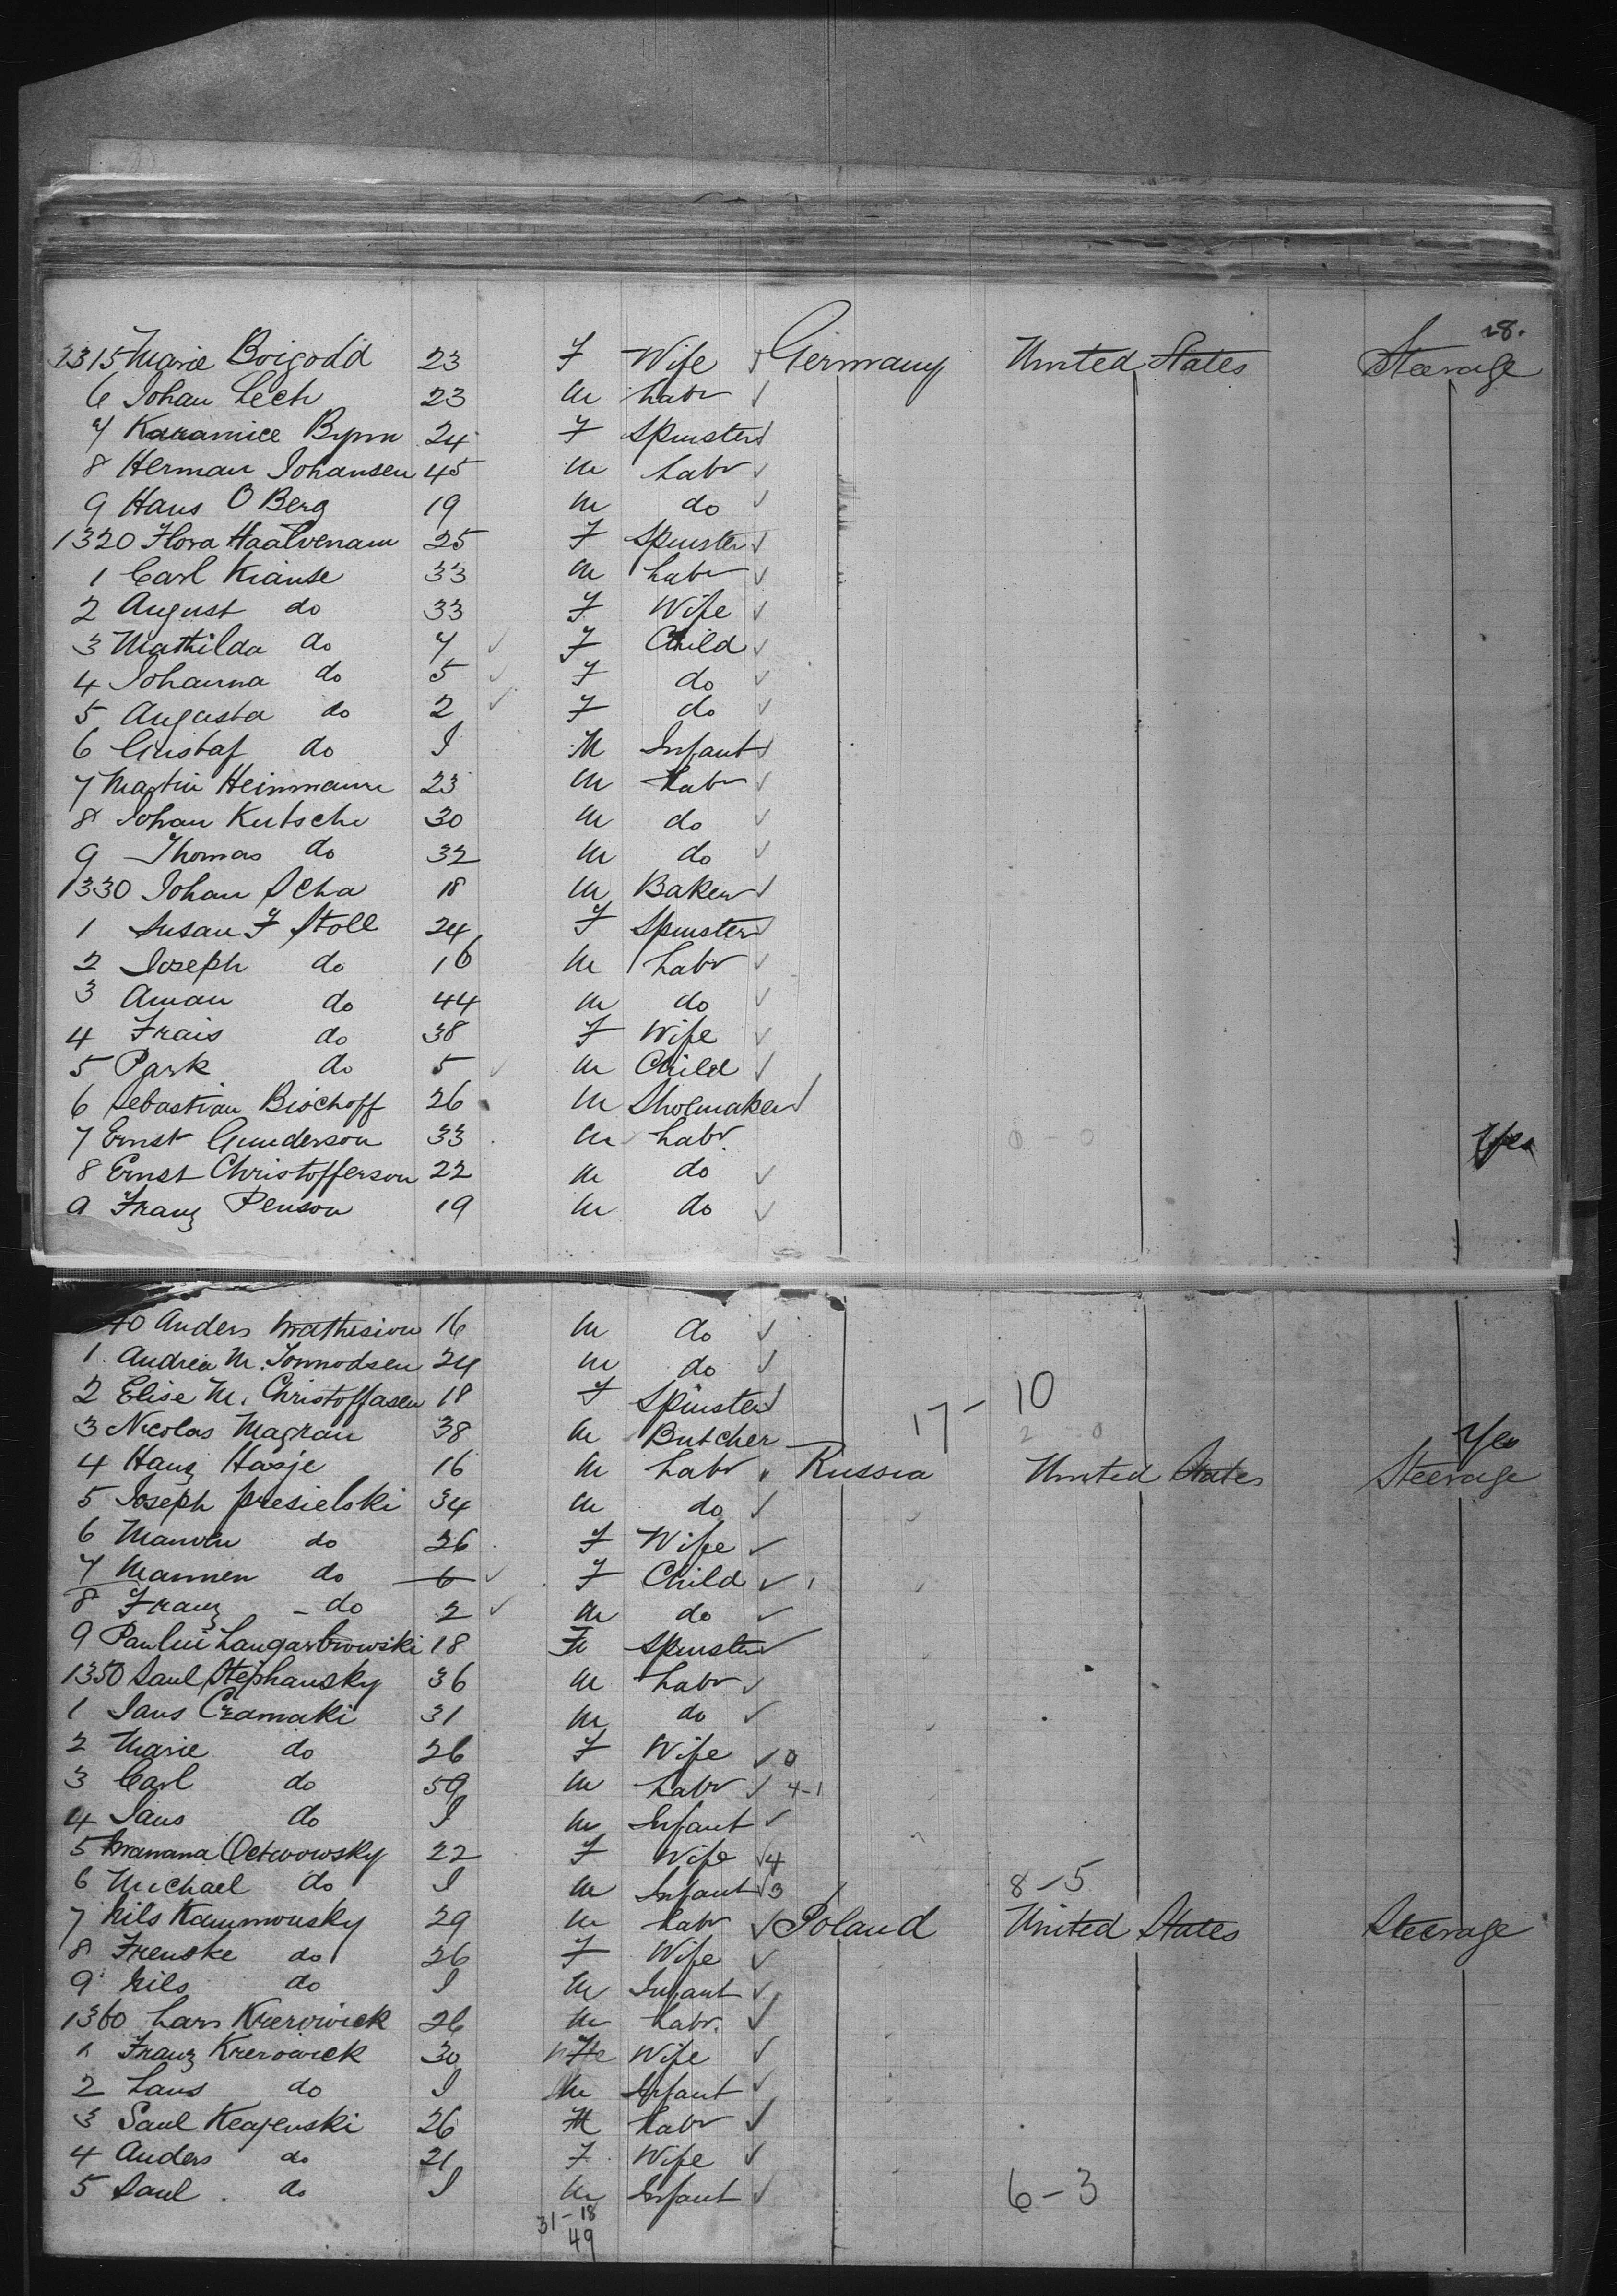 28.
1315 Marie Boigodd 23 F Wife √ Germany United States Steerage
6 Johan Lech 23 m labr √
7 Karamice Bymn 24 F Spinster √
8 Herman Johansen 45 m labr √
9 Hans O Berg 19 m do √
1320 Flora Haalvenam 25 F Spinster √
1 Carl Krause 33 m labr √
2 August do 33 F Wife √
3 Mathilda do 7 √ F Child √
4 Johanna do 5 √ F do √
5 Augusta do 2 √ F do √
6 Gustaf do I M Infant √
7 Martin Heinmann 23 m labr √
8 Johan Kutsche 30 m do √
9 Thomas do 32 m do √
1330 Johan Scha 18 m Baker √
1 Susan F Stoll 24 F Spinster √
2 Joseph do 16 m labr √
3 Aman do 44 m do √
4 Frais do 38 F Wife √
5 Park do 5 √ m Child √
6 Sebastian Bischoff 26 m Shoemaker √
7 Ernst Gunderson 33 m labr 0 - 0 Yes
8 Ernst Christofferson 22 m do √
9 Franz Penson 19 m do √
40 Anders Mathision 16 m do √
1 Andrea M. Tonnodsen 24 m do √
2 Elise M. Christoffasen 18 F Spinster √ 17 - 10
3 Nicolas Magrau 38 m Butcher 2 0 Yes
4 Hanz Hasje 16 m labr √ Russia United States Steerage
5 Joseph presielski 34 m do √
6 Manven do 26 F Wife √
7 Mannen do 6 √ F Child √
8 Franz - do 2 √ m do √
9 Paulin Langarbrowski 18 F Spinster √
1350 Saul Stephansky 36 m labr √
1 Jans Czamaki 31 m do √
2 Marie do 26 F Wife √ 0
3 Carl do 59 m labr √ 4-1
4 Jans do I m Infant √
5 Mranana Octwowsky 22 F Wife √ 4
6 Michael do I m Infant √ 3 8-5
7 Nils Kammonsky 29 m labr √ Poland United States Steerage
8 Frenske do 26 F Wife √
9 Nils do I m Infant √
1360 Lars Krerowick 26 m labr. √
1 Franz Krerowick 30 F Wife √
2 Laus do I m Infant √
3 Saul Keajenski 26 M labr √
4 Anders do 21 F Wife √
5 Saul do I m Infant √ 6-3
31-18
49